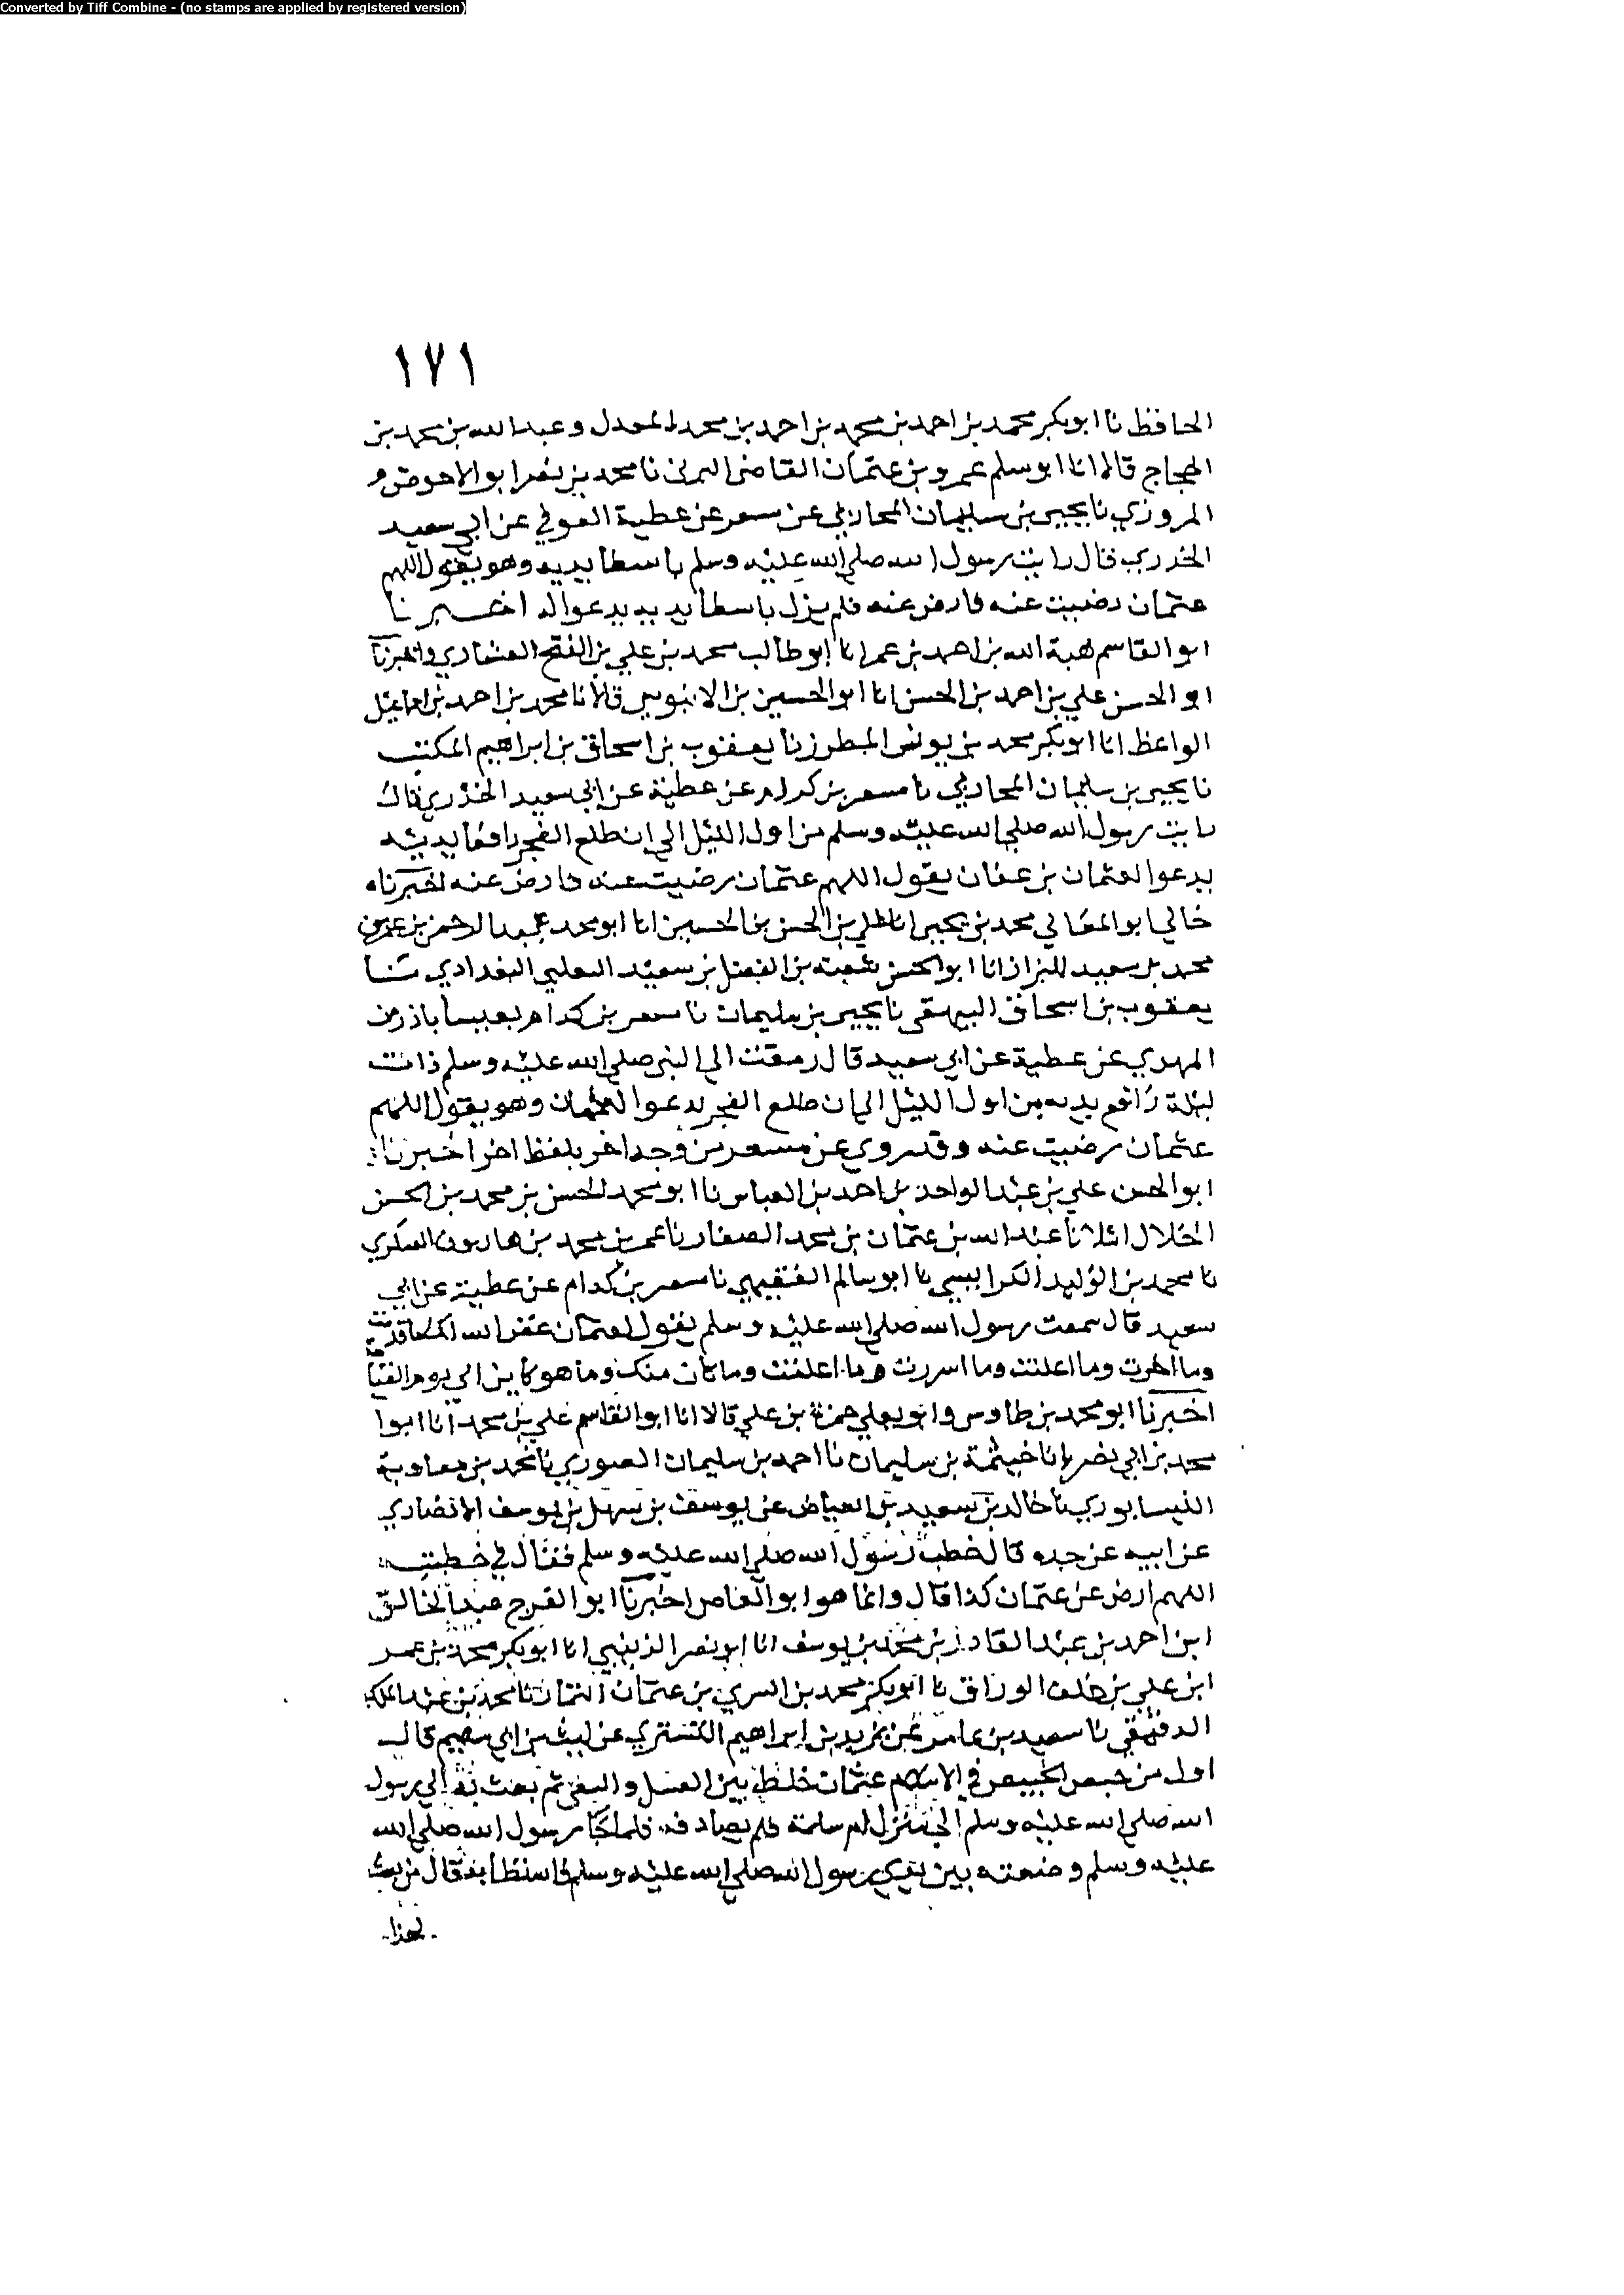 Converted by Tiff Combine - (no stamps are applied by registered version)
١٧١
الحافظ نا ابو بكر محمد بن احمد بن محمد بن احمد بن محمد المعدل وعبد الله بن محمد بن
الحجاج قالا انا ابو سلم عمرو بن عثمان القاضي نا محمد بن نصر ابو الاحوص
المروزي نا يحيى بن سليمان المحاربي عن مسعر عن عطية العوفي عن ابي سعيد
الخدري قال رايت رسول الله صلى الله عليه وسلم باسطا يديه وهو يقول اللهم
عثمان رضيت عنه فارض عنه فلم يزل باسطا يديه يدعوا له اخبرنا
ابو القاسم هبة الله بن احمد بن عمر انا ابو طالب محمد بن علي بن الفتح العشاري واخبرنا
ابو الحسن علي بن احمد بن الحسن انا ابو الحسين بن الابنوسي قالا نا محمد بن احمد بن اسماعيل
الواعظ انا ابو بكر محمد بن يونس المطرز نا يعقوب بن اسحاق بن ابراهيم المكتب
نا يحيى بن سليمان المحاربي نا مسعر بن كدام عن عطية عن ابي سعيد الخدري قال
رايت رسول الله صلى الله عليه وسلم من اول الليل الى ان طلع الفجر رافعا يديه
يدعوا لعثمان بن عفان يقول اللهم عثمان رضيت عنه فارض عنه اخبرناه
خالي ابو المعالي محمد بن يحيى انا علي بن الحسن بن الحسين انا ابو محمد عبد الرحمن بن عمر بن
محمد بن سعيد البزاز انا ابو الحسن شعبة بن الفضل بن سعيد الثعلبي البغدادي ثنا
يعقوب بن اسحاق البيهقي نا يحيى بن سليمان نا مسعر بن كدام
المهدي عن عطية عن ابي سعيد قال رمقت الى النبي صلى الله عليه وسلم ذات
ليلة رافع يديه من اول الليل الى ان طلع الفجر يدعوا لعثمان وهو يقول اللهم
عثمان رضيت عنه وقد روي عن مسعر من وجه اخر بلفظ اخر اخبرنا
ابو الحسن علي بن عبد الواحد بن احمد بن العباس نا ابو محمد الحسن بن محمد بن الحسن
الخلال املا نا عبد الله بن عثمان بن محمد الصفار نا عمر بن محمد بن هارون العسكري
نا محمد بن الوليد الكرابيسي نا ابو سالم الفقيمي نا مسعر بن كدام عن عطية عن ابي
سعيد قال سمعت رسول الله صلى الله عليه وسلم يقول لعثمان غفر الله لك ما قدمت
وما اخرت وما اعلنت وما اسررت وما اعلنت وما كان منك وما هو كاين الى يوم القيا
اخبرنا ابو محمد بن طاوس وابو يعلى حمزة بن علي قالا انا ابو القاسم علي بن محمد انا ابوا
محمد بن ابي نصر انا خيثمة بن سليمان نا احمد بن سليمان الصوري نا محمد بن معاوية
النيسابوري نا خالد بن سعيد بن العياض عن يوسف بن سهل بن يوسف الانصاري
عن ابيه عن جده قال خطب رسول الله صلى الله عليه وسلم فقال في خطبته
اللهم ارض عن عثمان كذا قال وانما هو ابو العاص اخبرنا ابو الفرج عبد الخالق
ابن احمد بن عبد القادر بن محمد بن يوسف انا ابو نصر الزينبي انا ابو بكر محمد بن عمر
ابن علي بن خلف الوراق نا ابو بكر محمد بن السري بن عثمان التمار نا محمد بن عبد الملك
الدقيقي نا سعيد بن عامر عن يزيد بن ابراهيم التستري عن ليث بن ابي سليم قال
اول من خبص الخبيص في الاسلام عثمان خلط بين العسل والنقي ثم بعث به الى رسول
الله صلى الله عليه وسلم الى منزل ام سلمة فلم يصادفه فلما جا رسول الله صلى الله
عليه وسلم وضعته بين يدي رسول الله صلى الله عليه وسلم فاستطابه فقال من بعث
بهذا